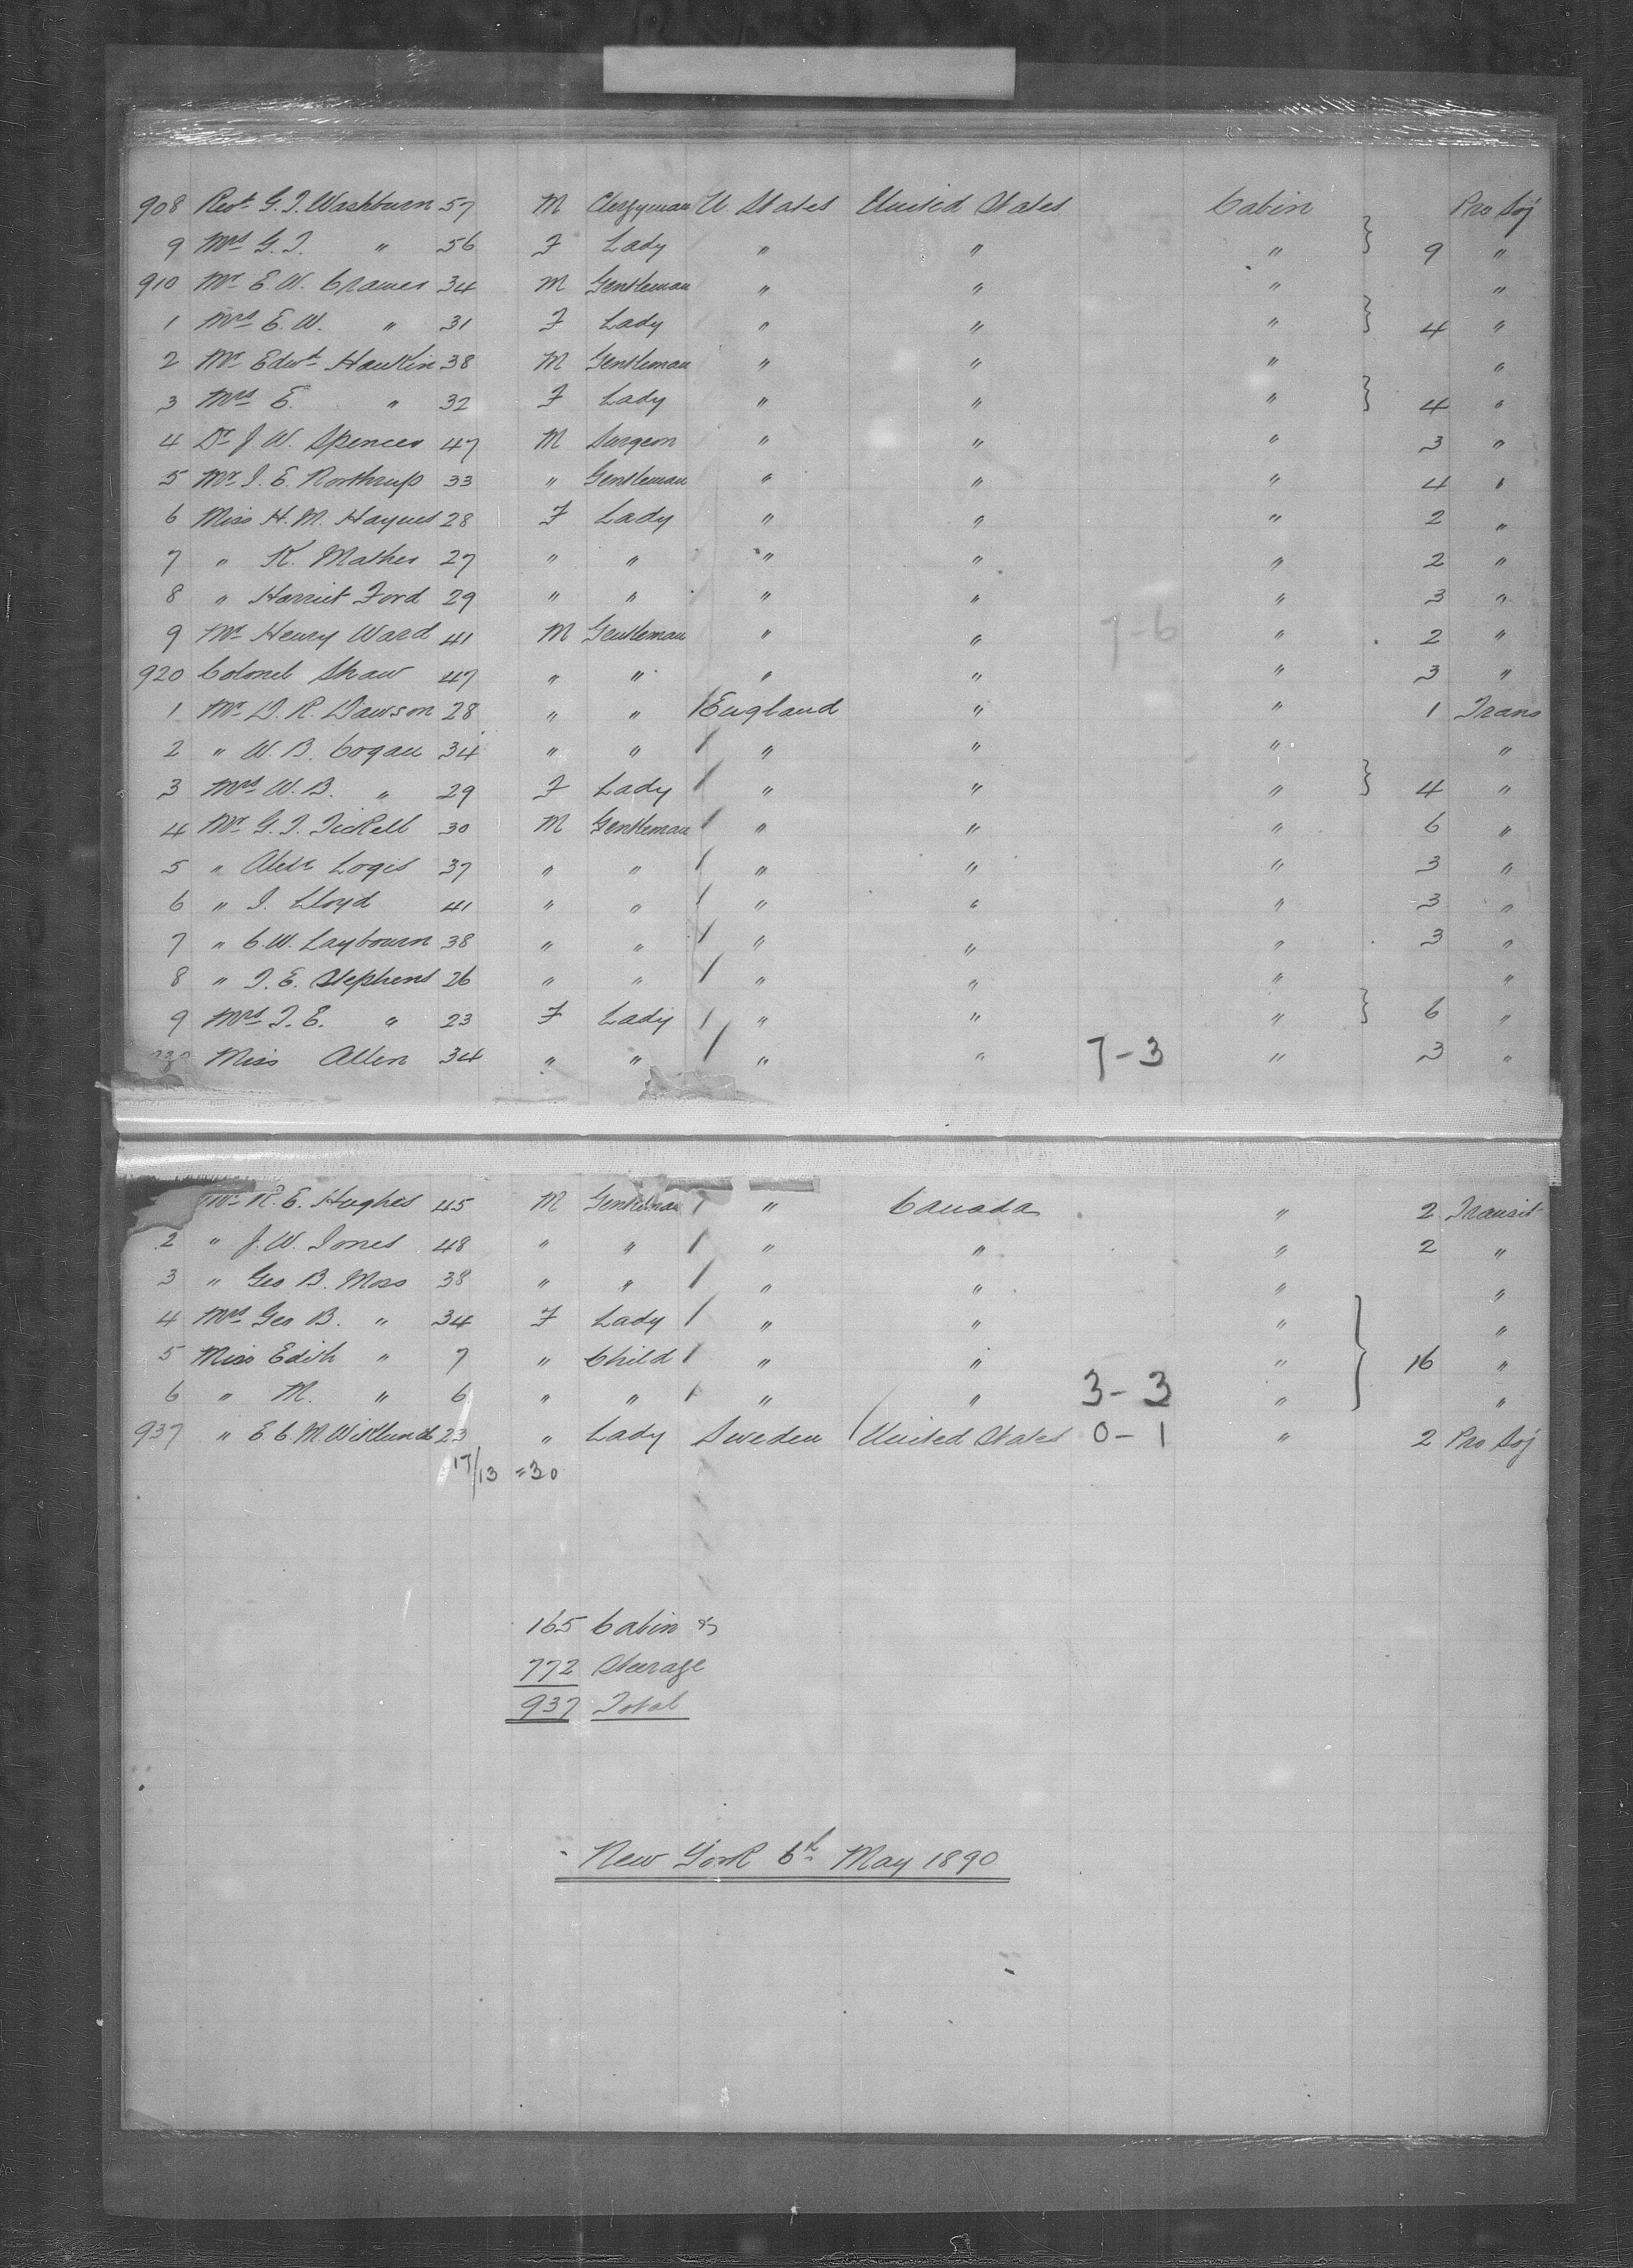 908 Revd G. T. Washburn 57 M Clergyman U. States United States Cabin Pro Soj
9 Mrs G. T. " 56 F Lady " " " } 9 "
910 Mr E. W. Cramer 34 M Gentleman " " " "
1 Mrs E. W. " 31 F Lady " " " } 4 "
2 Mr Edwd Hawkin 38 M Gentleman " " " "
3 Mrs E. " 32 F Lady " " " } 4 "
4 Dr J. W. Spencer 47 M Surgeon " " " 3 "
5 Mr I. E. Northrup 33 " Gentleman " " " 4 "
6 Miss H. M. Haynes 28 F Lady " " " 2 "
7 " K. Mather 27 " " " " " 2 "
8 " Harriet Ford 29 " " " " " 3 "
9 Mr Henry Ward 41 M Gentleman " " 7-6 " 2 "
920 Colonel Shaw 47 " " " " " 3 "
1 Mr D. R. Dawson 28 " " / England " " 1 Trans
2 " W. B. Cogan 34 " " / " " " "
3 Mrs W. B. " 29 F Lady / " " " } 4 "
4 Mr G. T. Tickell 30 M Gentleman / " " " 6 "
5 " Alexr Loges 37 " " / " " " 3 "
6 " I. Lloyd 41 " " / " " " 3 "
7 " C. W. Laybourn 38 " " / " " " 3 "
8 " T. E. Stephens 26 " " / " " " "
9 Mrs T. E. " 23 F Lady / " " " } 6 "
930 Miss Allen 34 " " / " " 7-3 " 3 "
Mr R. E. Hughes 45 M Gentleman / " Canada " 2 Transit
2 " J. W. Jones 48 " " / " " " 2 "
3 " Geo B. Moss 38 " " / " " " "
4 Mrs Geo B. " 34 F Lady / " " " "
5 Miss Edith " 7 " Child / " " " } 16 "
6 " M. " 6 " " / " " 3-3 " "
937 " E. C. M. Wiklund 23 " Lady Sweden / United States 0-1 " 2 Pro Soj
17/13 = 30
165 Cabin &
772 Steerage
937 Total
New York 6th May 1890